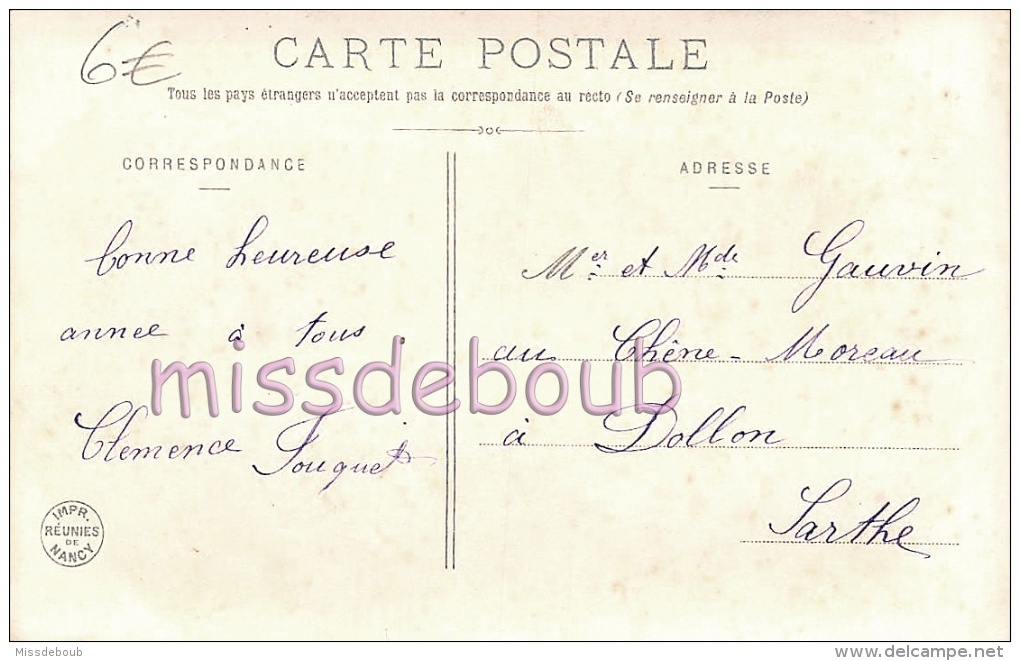 6€
CARTE POSTALE
Tous les pays étrangers n'acceptent pas la correspondance au recto (Se renseigner à la Poste)
CORRESPONDANCE
bonne heureuse
annee à tous.
Clemence Fouquet
IMPR.
RÉUNIES
DE
NANCY
ADRESSE
Mer et Mde Gauvin
au Chêne-Moreau
à Dollon
Sarthe
missdeboub
Missdeboub
delcampe.net